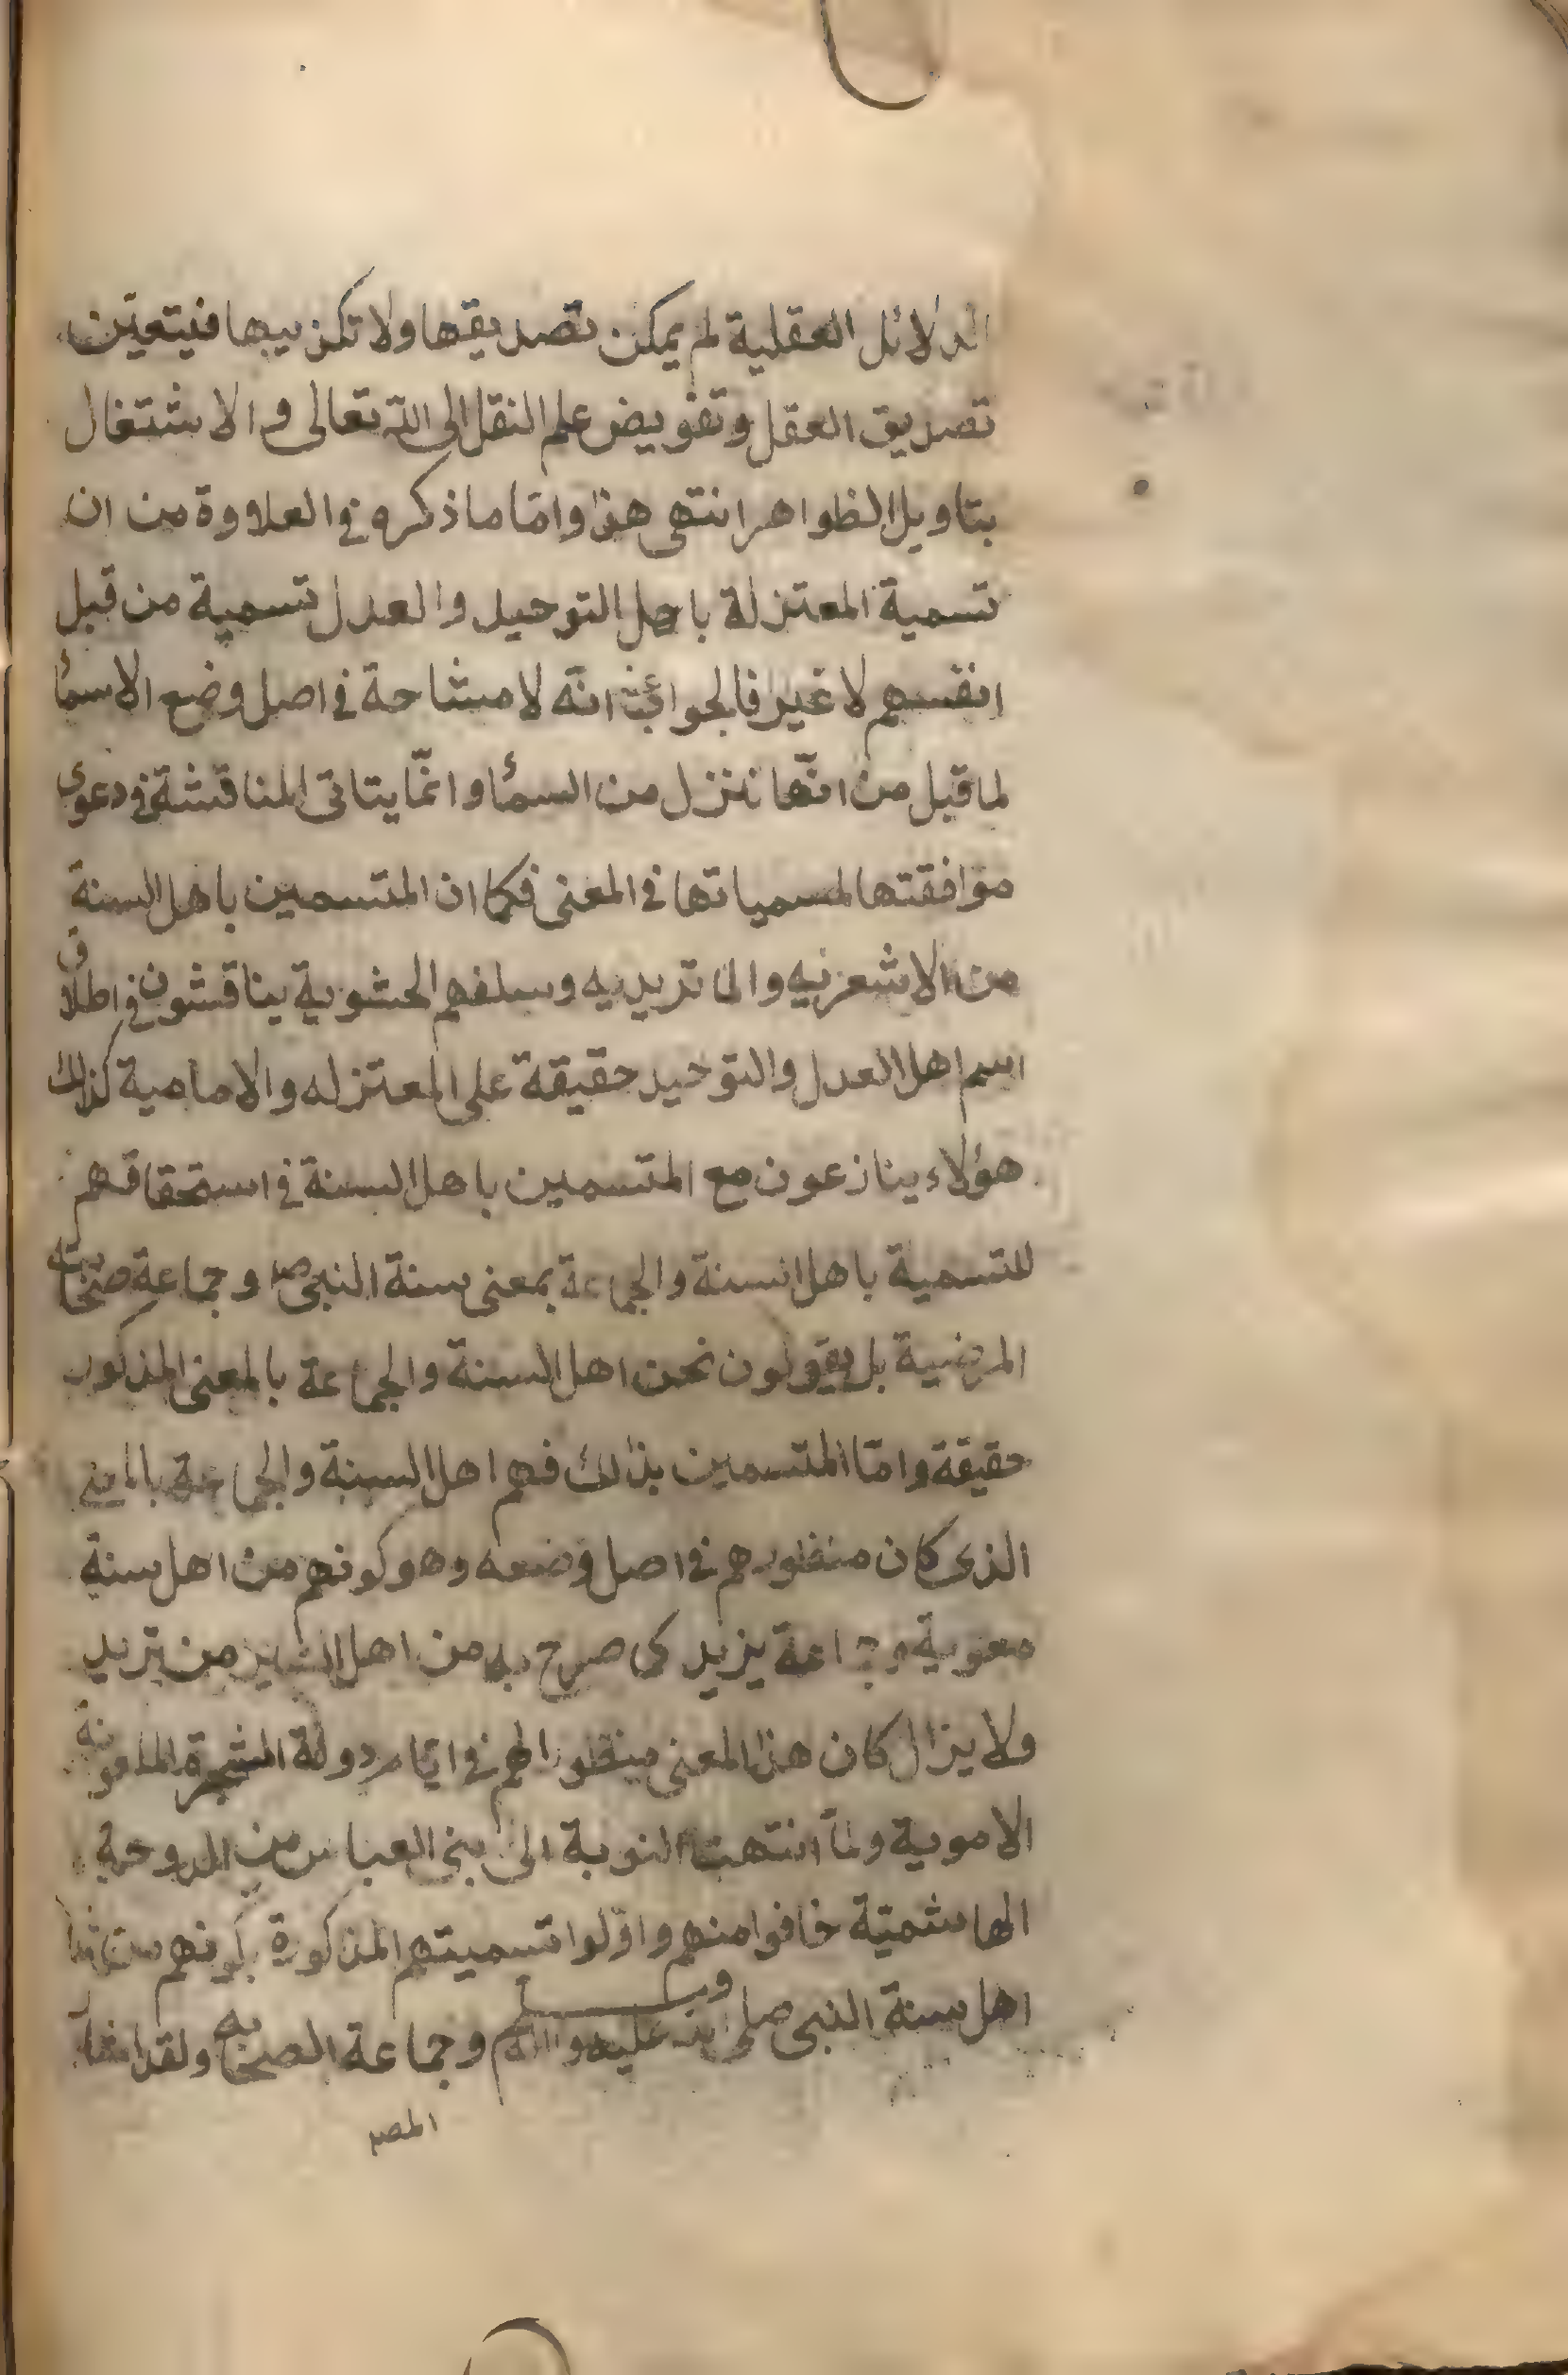 الدلائل العقلية لم يمكن تصديقها ولا تكذيبها فيتعين
تصديق العقل وتفويض علم النقل الى الله تعالى والاشتغال
بتاويل الظواهر انتهى هذا وامّا ما ذكره في العلاوة من ان
تسمية المعتزلة باهل التوحيد والعدل تسمية من قبل
انفسهم لا غير فالجواب عنه انّه لا مشاحة في اصل وضع الاسمأ
لما قيل من انّها تنزل من السمأ وانّما يتاتى المناقشة في دعوى
موافقتها لمسمياتها في المعنى فكما ان المتسمين باهل السنة
من الاشعريه والماتريديه وسلفهم الحشوية يناقشون في اطلاق
اسم اهل العدل والتوحيد حقيقة على المعتزله والامامية كذلك
هؤلاء ينازعون مع المتسمين باهل السنة في استحقاقهم
للتسمية باهل السنة والجماعة بمعنى سنة النبي ص وجماعة صحابته
المرضية بل يقولون نحن اهل السنة والجماعة بالمعنى المذكور
حقيقة وامّا المتسمين بذلك فهم اهل السنة والجماعة بالمعنى
الذي كان منظورهم في اصل وضعه وهو كونهم من اهل سنة
معوية وجماعة يزيد كما صرح به من اهل من يزيد
ولا يزال كان هذا المعنى منظورا لهم في ايّام دولة الشجرة الملعونة
الاموية ولمّا انتهت النوبة الى بني العباس من الدوحة
الهاشميّة خافوا منهم واوّلوا تسميتهم المذكورة بكونهم
اهل سنة النبي صلى الله عليه واله وسلم وجماعة الصحابه ولقد اشار
المصـ